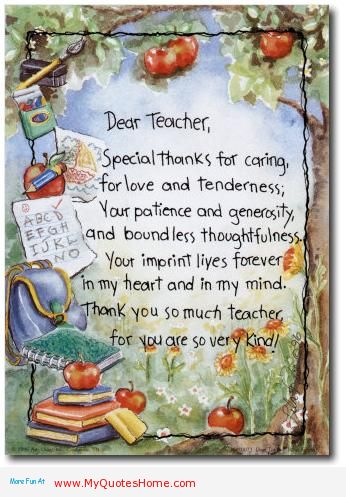 Dear Teacher,
Special thanks for caring,
for love and tenderness;
Your patience and generosity,
and boundless thoughtfulness.
Your imprint lives forever
in my heart and in my mind.
Thank you so much teacher,
for you are so very kind!
ABCD
EFGH
IJKL
NO
More Fun At
www.MyQuotesHome.com